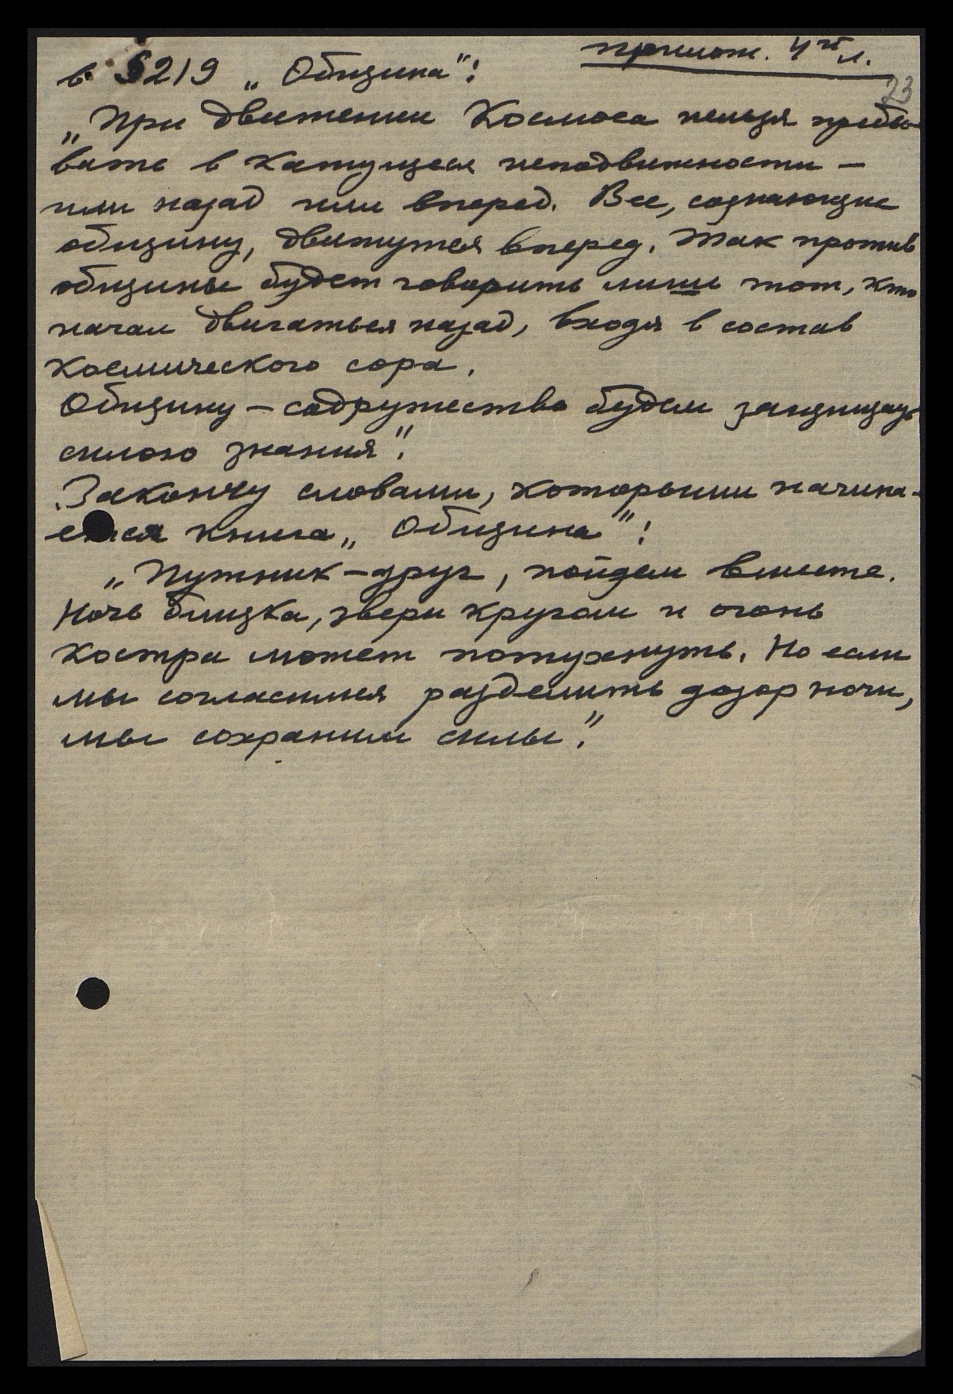 прилож. 4й л.
23
в § 219 „Община":
„При движении Космоса нельзя пребы-
вать в кажущейся неподвижности –
или назад или вперед. Все, сознающие
общину, движутся вперед. Так против
общины будет говорить лишь тот, кто
начал двигаться назад, входя в состав
Космического сора.
Общину – содружество будем защищать
силою знания".
Закончу словами, которыми начина-
ется книга „Община":
„Путник – друг, пойдем вместе.
Ночь близка, звери кругом и огонь
костра может потухнуть. Но если
мы согласимся разделить дозор ночи,
мы сохраним силы".